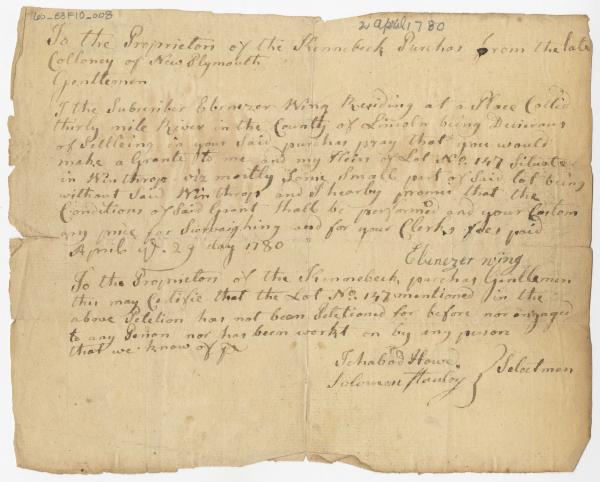 60_E3F10_008
2 April 1780
To the Proprietors of the Kennebeck Purchas from the late
Colloney of New Plymouth
Gentlemen
I the Subscriber Ebenezer Wing Residing at a Place Called
thirty mile River in the County of Lincoln being Desirous
of Settleing in your Said purchas pray that you would
make a Grante to me and my Heirs of Lot No. 147 Situate
in Winthrop viz mostly Some Small part of Said lot being
without Said Winthrop and I hearby promis that the
Conditions of Said Grant Shall be performed and your Costom
any price for Survaighing and for your Clerks fees paid
April ye. 29 day 1780
Ebenezer Wing
To the Proprietors of the Kennebeck purchas Gentlemen
this may Certifie that the Lot No. 147 mentioned in the
above Petetion has not been Petitioned for before nor ingaged
to any Person nor has been workt on by any person
that we know of
Ichabod Howe
Solomon Stanley
Selectmen